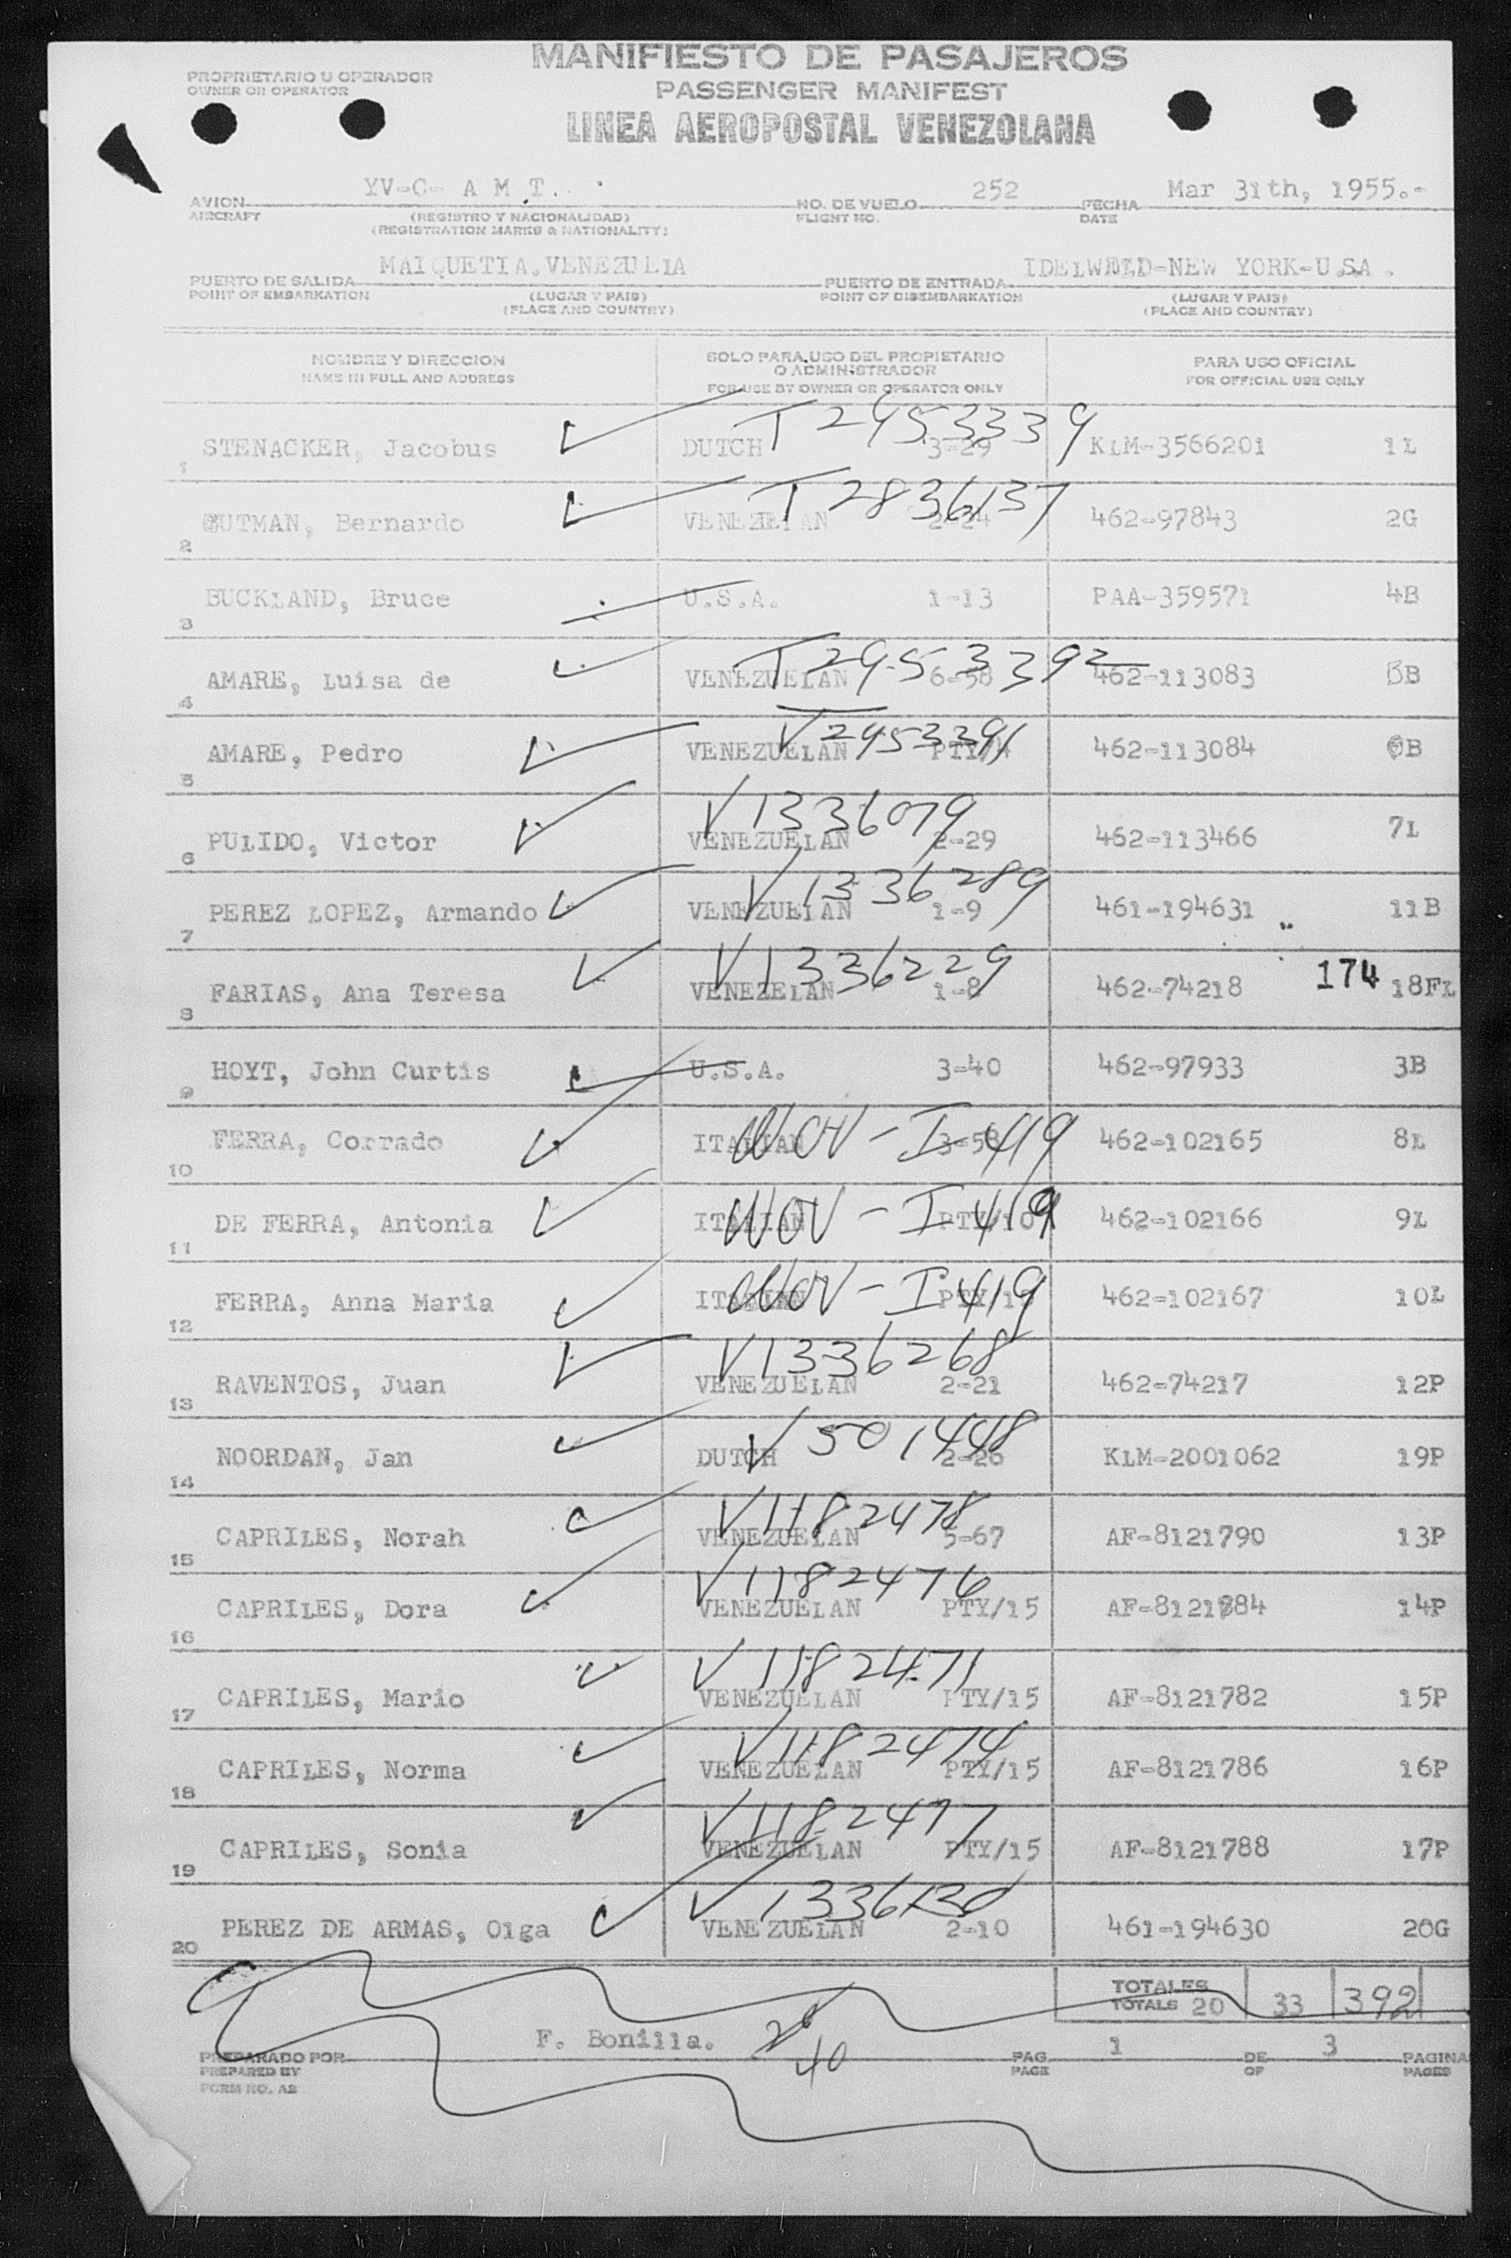 MANIFIESTO DE PASAJEROS
PROPRIETARIO U OPERADOR
OWNER OR OPERATOR
PASSENGER MANIFEST
LINEA AEROPOSTAL VENEZOLANA
AVION YV-C- A M T. NO. DE VUELO 252 FECHA Mar 31th, 1955.-
AIRCRAFT (REGISTRO Y NACIONALIDAD) FLIGHT NO. DATE
(REGISTRATION MARKS & NATIONALITY)
PUERTO DE SALIDA MAIQUETIA.VENEZUELA PUERTO DE ENTRADA IDELWEED-NEW YORK-U.S.A.
POINT OF EMBARKATION (LUGAR Y PAIS) POINT OF DISEMBARKATION (LUGAR Y PAIS)
(PLACE AND COUNTRY) (PLACE AND COUNTRY)
NOMBRE Y DIRECCION SOLO PARA USO DEL PROPIETARIO O ADMINISTRADOR PARA USO OFICIAL
NAME IN FULL AND ADDRESS FOR USE BY OWNER OR OPERATOR ONLY FOR OFFICIAL USE ONLY
T2953339
1 STENACKER, Jacobus DUTCH 3-29 KLM-3566201 1L
T2836137
2 GUTMAN, Bernardo VENEZUELAN 462-97843 2G
3 BUCKLAND, Bruce U.S.A. 1-13 PAA-359571 4B
T2953392
4 AMARE, Luisa de VENEZUELAN 6-58 462-113083 5B
V2953391
5 AMARE, Pedro VENEZUELAN PTY/4 462-113084 6B
V1336079
6 PULIDO, Victor VENEZUELAN 2-29 462-113466 7L
V1336289
7 PEREZ LOPEZ, Armando VENEZUELAN 1-9 461-194631 11B
V1336229
8 FARIAS, Ana Teresa VENEZELAN 1-8 462-74218 174 18FL
9 HOYT, John Curtis U.S.A. 3-40 462-97933 3B
10 FERRA, Corrado ITALIAN 3-58 I-419 462-102165 8L
11 DE FERRA, Antonia ITALIAN PTY/10 I-419 462-102166 9L
12 FERRA, Anna Maria ITALIAN I-419 462-102167 10L
V1336268
13 RAVENTOS, Juan VENEZUELAN 2-21 462-74217 12P
V501448
14 NOORDAN, Jan DUTCH 2-26 KLM-2001062 19P
V1182478
15 CAPRILES, Norah VENEZUELAN 5-67 AF-8121790 13P
V1182476
16 CAPRILES, Dora VENEZUELAN PTY/15 AF-8121784 14P
V1182471
17 CAPRILES, Mario VENEZUELAN PTY/15 AF-8121782 15P
V1182474
18 CAPRILES, Norma VENEZUELAN PTY/15 AF-8121786 16P
V1182477
19 CAPRILES, Sonia VENEZUELAN PTY/15 AF-8121788 17P
V1336130
20 PEREZ DE ARMAS, Olga VENEZUELAN 2-10 461-194630 20G
TOTALES
TOTALS 20 33 392
PREPARADO POR F. Bonilla. 40 PAG. 1 DE 3 PAGINA
PREPARED BY PAGE OF PAGES
FORM NO. A2